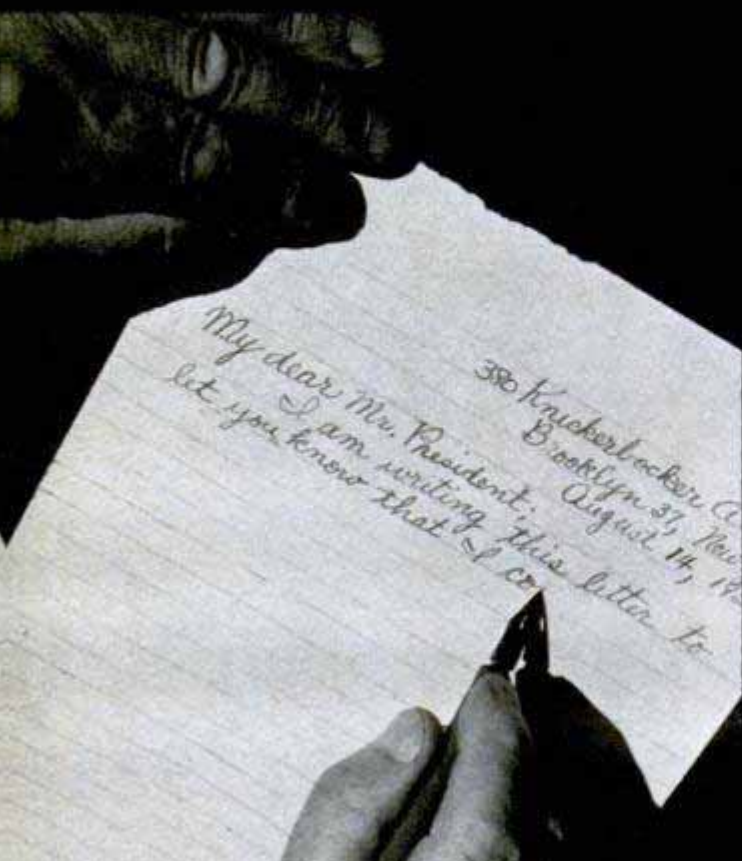 380 Knickerbocker A
Brooklyn 37, New
August 14, 19
My dear Mr. President:
I am writing this letter to
let you know that I co